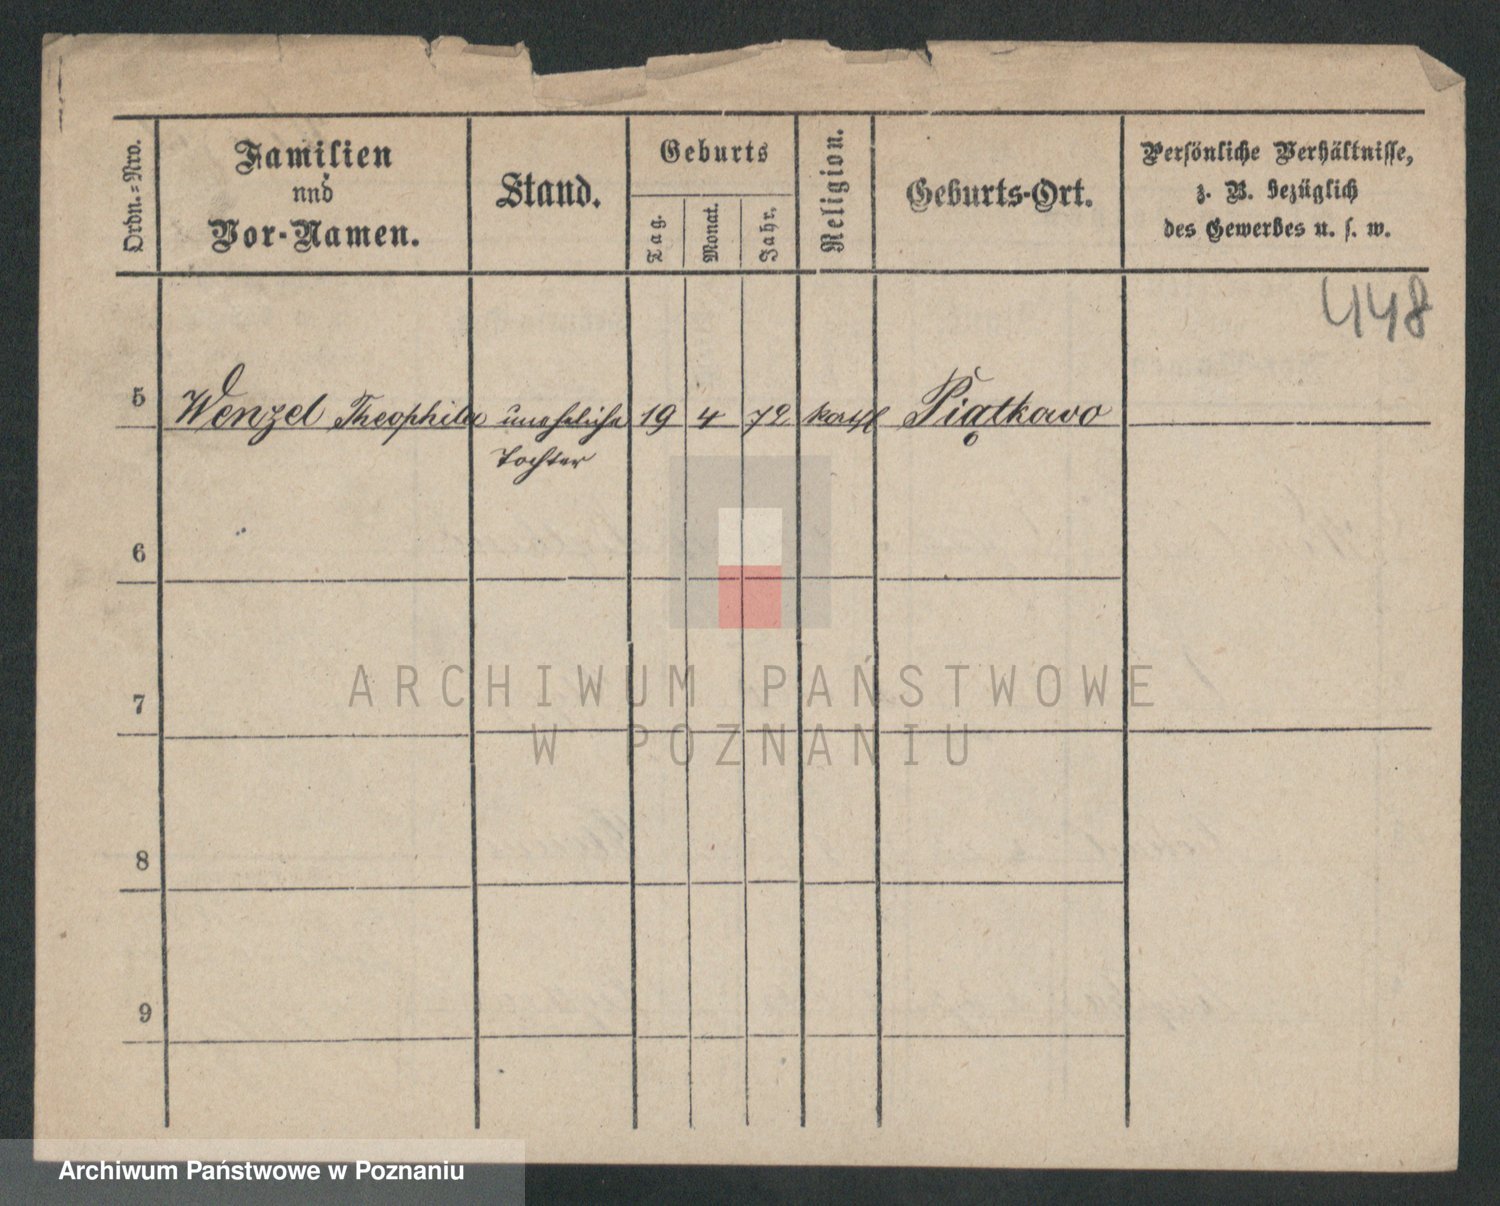 Ordn.=Nro.
Familien
und
Vor-Namen.
Stand.
Geburts
Tag.
Monat.
Jahr.
Religion.
Geburts-Ort.
Persönliche Verhältnisse,
z. B. bezüglich
des Gewerbes u. s. w.
448
5 Wenzel Theophila uneheliche 19 4 72 kath Piątkowo
Tochter
6
7
8
9
ARCHIWUM PAŃSTWOWE
W POZNANIU
Archiwum Państwowe w Poznaniu